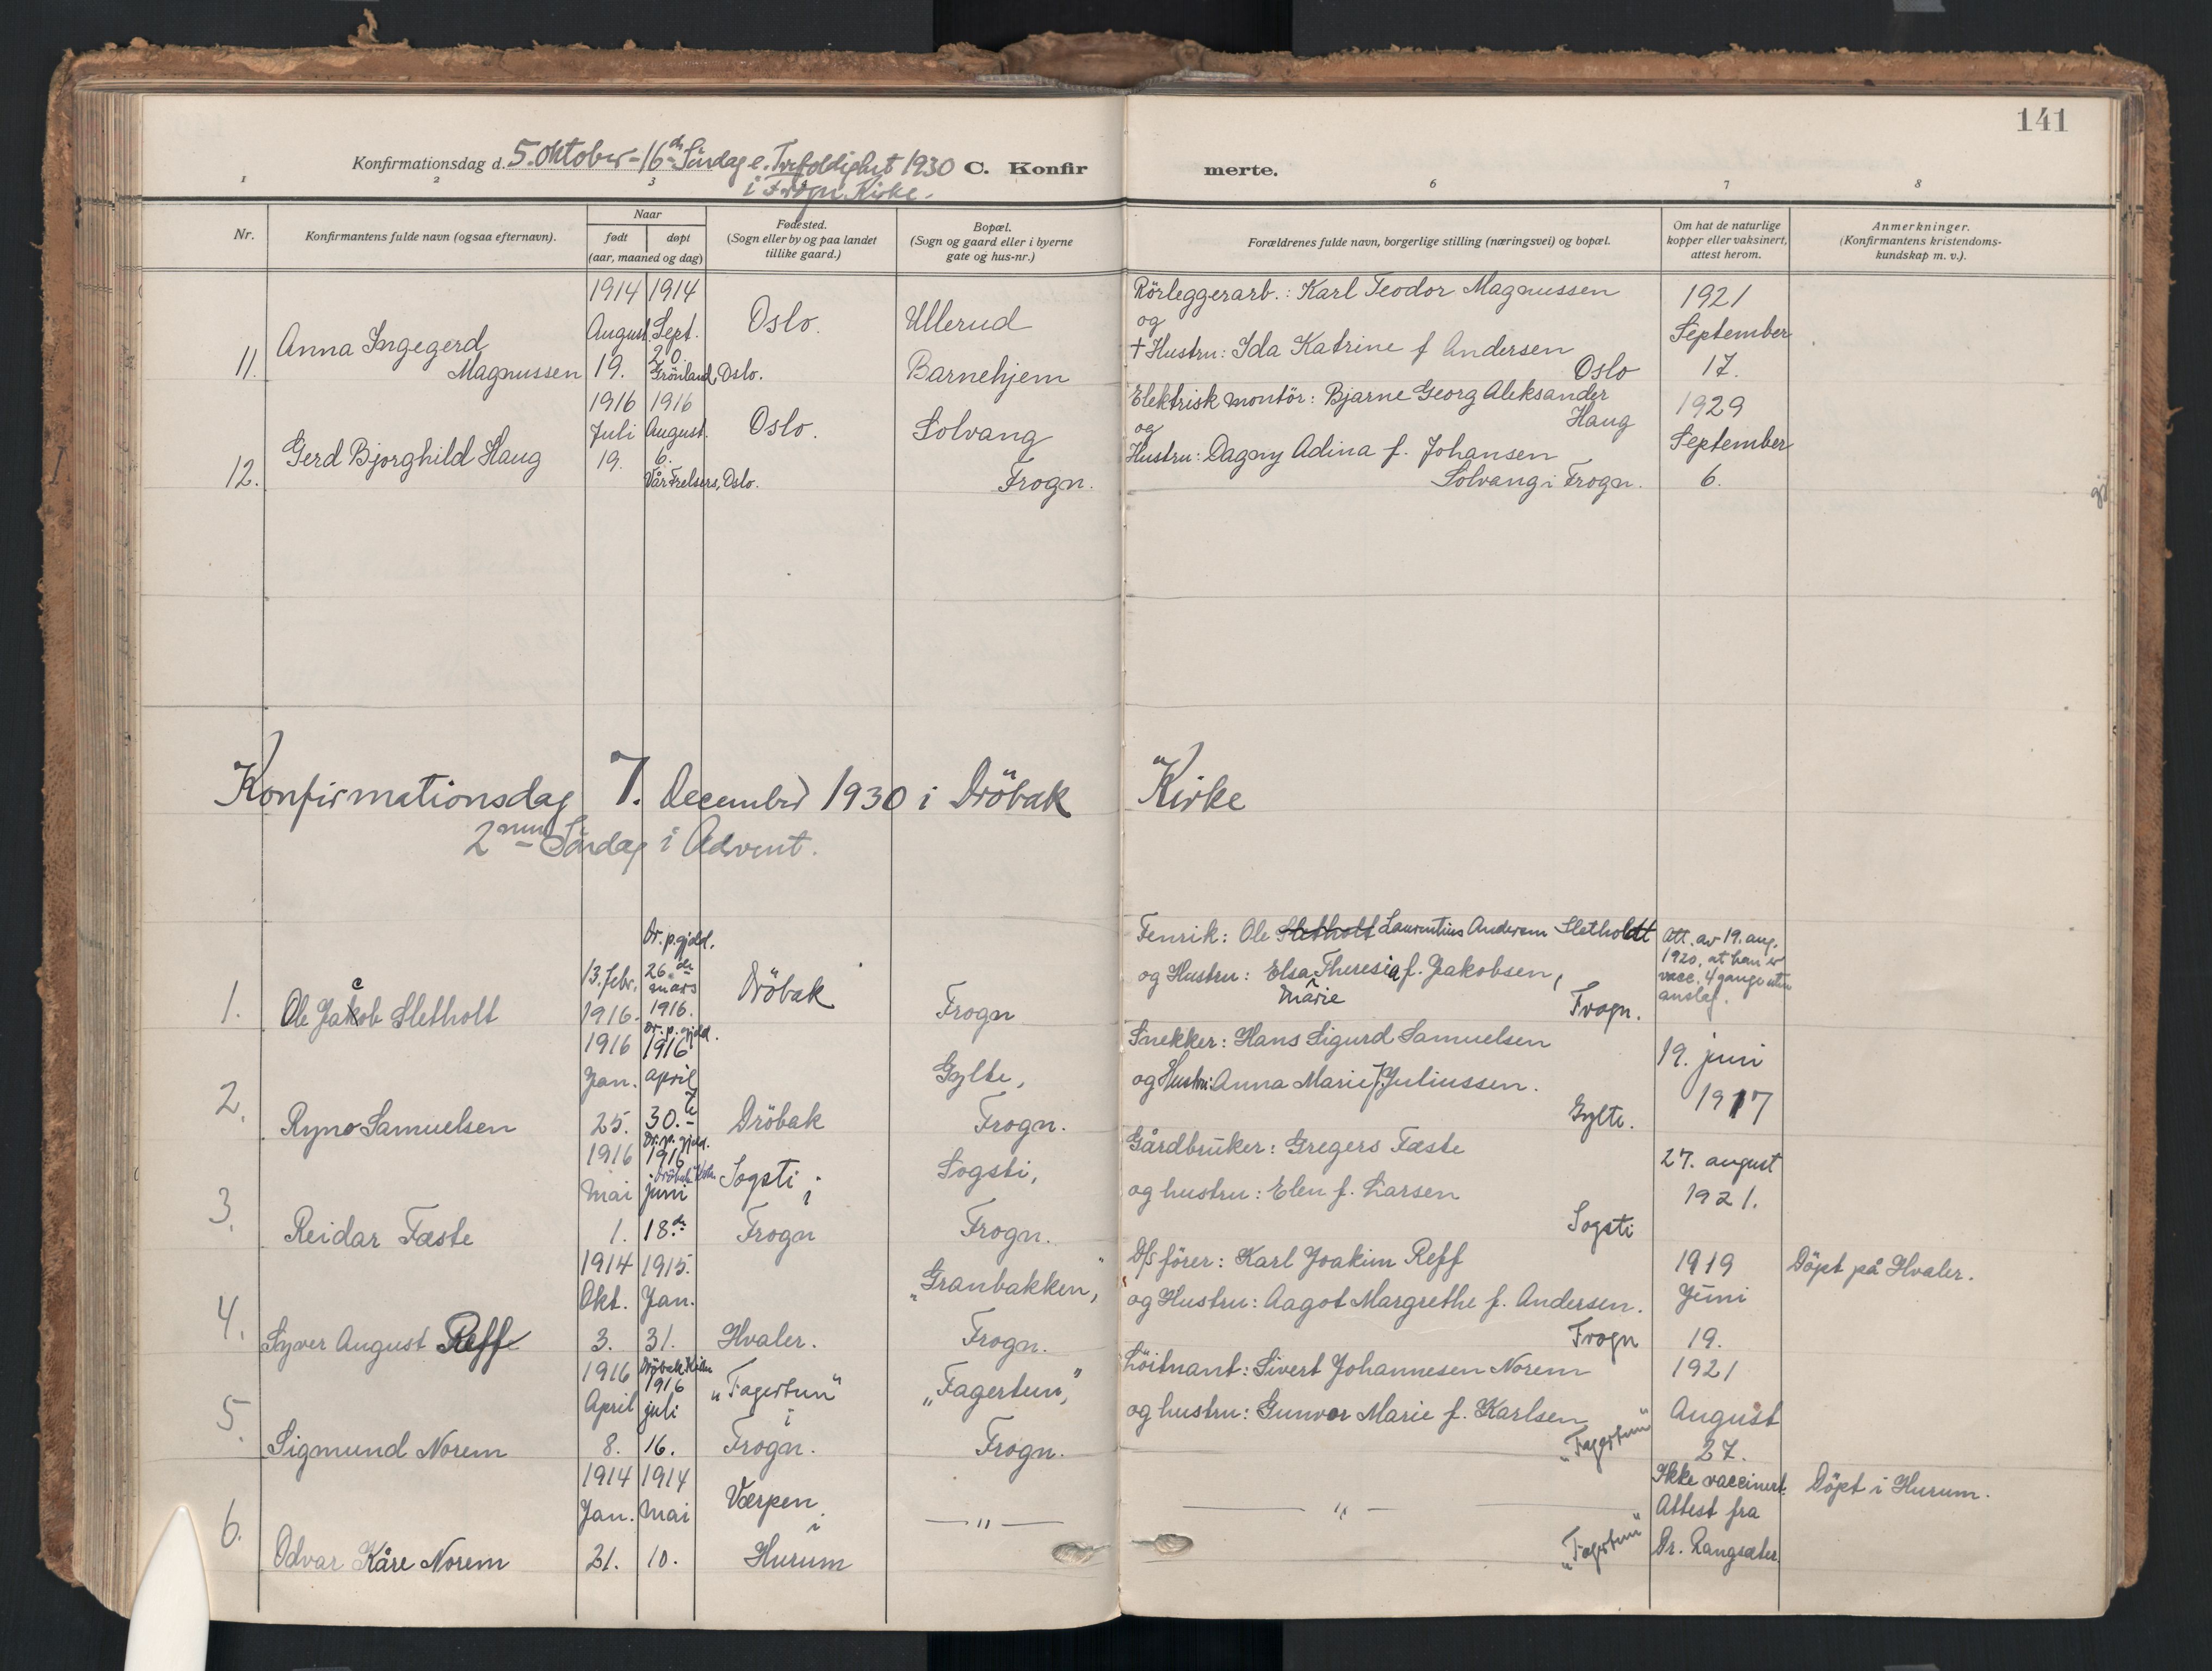 141
Konfirmationsdag d. 5. Oktober - 16de Søndag e. Trefoldighet 1930 C. Konfirmerte.
i Frogn Kirke.
1 2 3 6 7 8
Nr.
Konfirmantens fulde navn (ogsaa efternavn).
Naar
født døpt
(aar, maaned og dag)
Fødested.
(Sogn eller by og paa landet
tillike gaard.)
Bopæl.
(Sogn og gaard eller i byerne
gate og hus-nr.)
Forældrenes fulde navn, borgerlige stilling (næringsvei) og bopæl.
Om hat de naturlige
kopper eller vaksinert,
attest herom.
Anmerkninger.
(Konfirmantens kristendoms-
kundskap m. v.).
11. Anna Ingegerd
Magnussen
1914
August
19.
1914
Sept.
20.
Grönland, Oslo.
Oslo.
Ullerud
Barnehjem
Rörleggerarb.: Karl Teodor Magnussen
og
† Hustru: Ida Katrine f. Andersen
Oslo
1921
September
17.
12. Gerd Bjorghild Haug
1916
Juli
19.
1916
August.
6.
Vår Frelsers, Oslo.
Oslo.
Solvang
Frogn.
Elektrisk montör: Bjarne Georg Aleksander
Haug
og
Hustru: Dagny Adina f. Johansen
Solvang i Frogn.
1929
September
6.
Konfirmationsdag 7. December 1930 i Dröbak Kirke
2nen Söndag i Advent.
1. Ole Jacob Sletholt
13. febr.
1916.
Dr. p.gjeld.
26.de
mars
1916.
Dröbak
Frogn
Fenrik: Ole Sletholt Laurentius Andersen Sletholdt
og Hustru: Elsa Theresia f. Jakobsen,
Marie
Frogn.
Att. av 19. aug.
1920, at han er
vacc. 4 gange uten
anslag.
2. Ryno Samuelsen
1916
Jan.
25.
Dr. p. gjeld.
1916
april
30.te
Dröbak
Gylte,
Frogn.
Snekker: Hans Sigurd Samuelsen
og Hustru: Anna Marie f. Juliussen.
Gylte.
19. juni
1917
3. Reidar Fæste
1916
Mai
1.
Dr. p. gjeld.
1916
Dröbak Kirke
juni
18.de
Sogsti i
Frogn
Sogsti,
Frogn.
Gårdbruker: Gregers Fæste
og hustru: Elen f. Larsen
Sogsti
27. august
1921.
4. Syver August Reffe
1914
Okt.
3.
1915.
Jan.
31.
Hvaler.
"Granbakken,"
Frogn.
D/s förer: Karl Joakim Reff
og Hustru: Aagot Margrethe f. Andersen.
Frogn
1919
Juni
19.
Döpt på Hvaler.
5. Sigmund Norem
1916
April
8.
Dröbak Kirke
1916
juli
16.
"Fagertun"
i
Frogn.
"Fagertun,"
Frogn.
Löitnant: Sivert Johannesen Norem
og hustru: Gunvor Marie f. Karlsen
"Fagertun"
1921
August
27.
6. Odvar Kåre Norem
1914
Jan.
21.
1914
Mai
10.
Værpen
i
Hurum
— " —
— " —
"Fagertun"
Ikke vaccinert.
Attest fra
Dr. Langsæter.
Döpt i Hurum.